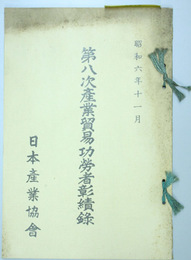 昭和六年十一月
第八次産業貿易功勞者彰績錄
日本産業協會